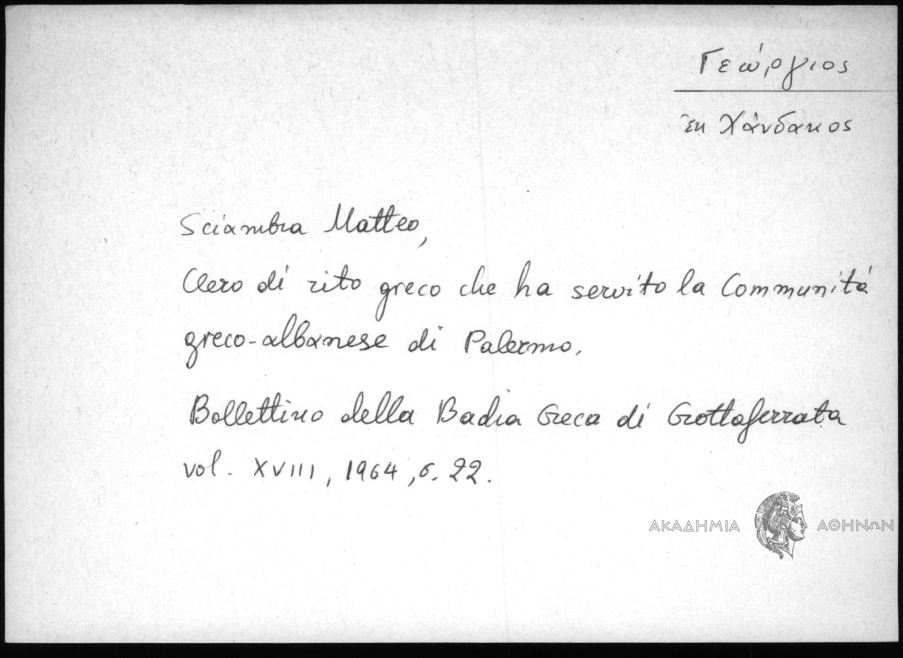 Γεώργιος
ἐκ Χάνδακος
Sciambra Matteo,
Clero di rito greco che ha servito la Communitá
greco-albanese di Palermo.
Bollettino della Badia Greca di Grottaferrata
vol. XVIII, 1964, σ. 22.
ΑΚΑΔΗΜΙΑ ΑΘΗΝΩΝ